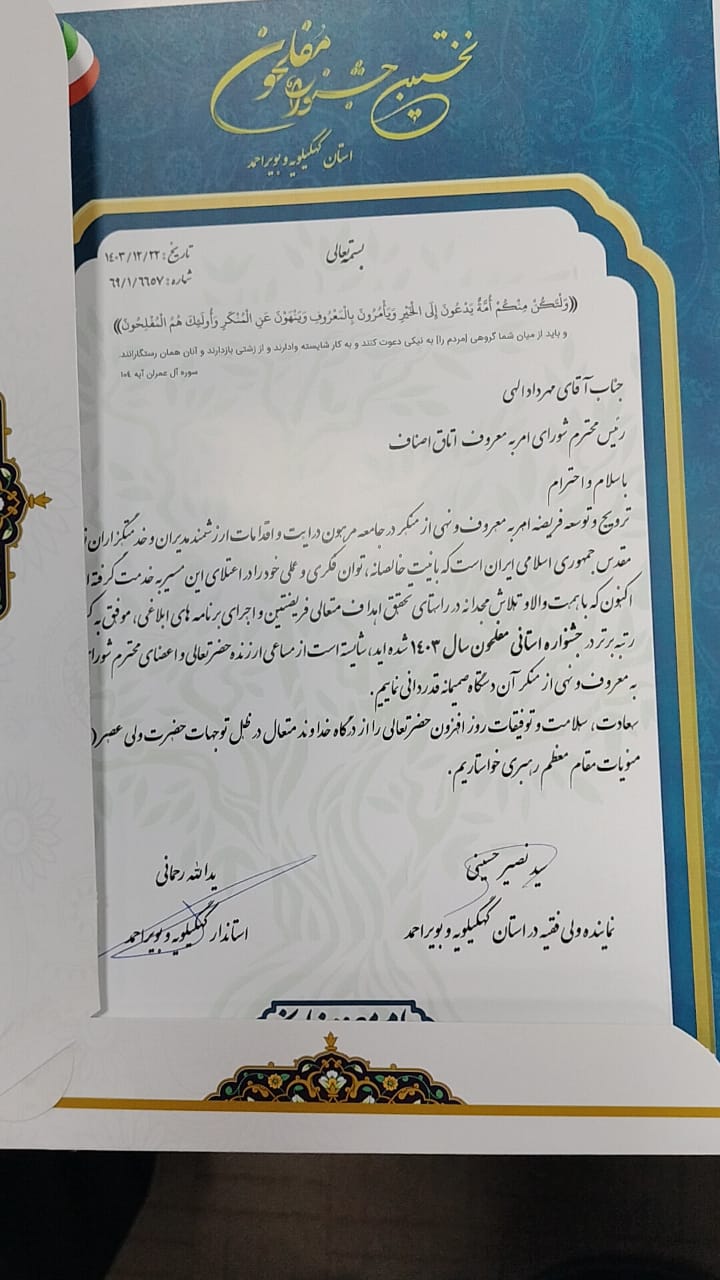 نخستین جشنواره مفلحون
استان کهگیلویه و بویراحمد
بسمه تعالی
تاریخ: ۱۴۰۳/۱۲/۲۲
شماره: ۶۹/۱/۶۶۵۷
((وَلْتَكُنْ مِنْكُمْ أُمَّةٌ يَدْعُونَ إِلَى الْخَيْرِ وَيَأْمُرُونَ بِالْمَعْرُوفِ وَيَنْهَوْنَ عَنِ الْمُنْكَرِ وَأُولَئِكَ هُمُ الْمُفْلِحُونَ))
و باید از میان شما گروهی [مردم را] به نیکی دعوت کنند و به کار شایسته وادارند و از زشتی بازدارند و آنان همان رستگارانند.
سوره آل عمران آیه ۱۰۴
جناب آقای مهرداد الهی
رئیس محترم شورای امر به معروف اتاق اصناف
با سلام و احترام
ترویج و توسعه فریضه امر به معروف و نهی از منکر در جامعه مرهون درایت و اقدامات ارزشمند مدیران و خدمتگزاران
مقدس جمهوری اسلامی ایران است که با نیت خالصانه، توان فکری و عملی خود را در اعتلای این مسیر به خدمت گرفته
اکنون که با همت والا و تلاش مجدانه در راستای تحقق اهداف متعالی فریضتین و اجرای برنامه های ابلاغی، موفق به
رتبه برتر در جشنواره استانی مفلحون سال ۱۴۰۳ شده اید، شایسته است از مساعی ارزنده حضرتعالی و اعضای محترم شورا
به معروف و نهی از منکر آن دستگاه صمیمانه قدردانی نماییم.
سعادت، سلامت و توفیقات روز افزون حضرتعالی را از درگاه خداوند متعال در ظل توجهات حضرت ولی عصر(
منویات مقام معظم رهبری خواستاریم.
سید نصیر حسینی
نماینده ولی فقیه در استان کهگیلویه و بویراحمد
یدالله رحمانی
استاندار کهگیلویه و بویراحمد